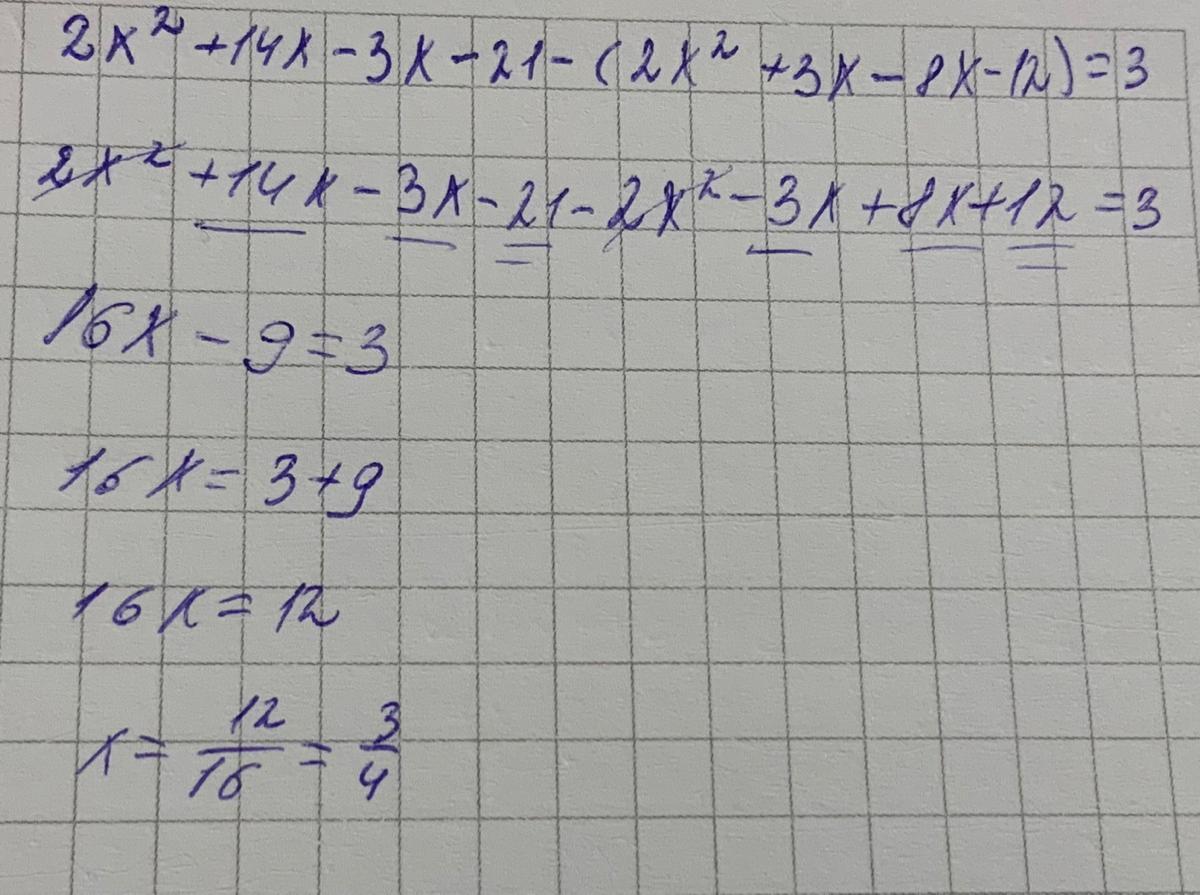 2x² +14x -3x -21 - (2x² +3x - 8x -12) = 3
2x² +14x - 3x - 21 - 2x² - 3x + 8x + 12 = 3
16x - 9 = 3
16x = 3 + 9
16x = 12
x = 12/16 = 3/4